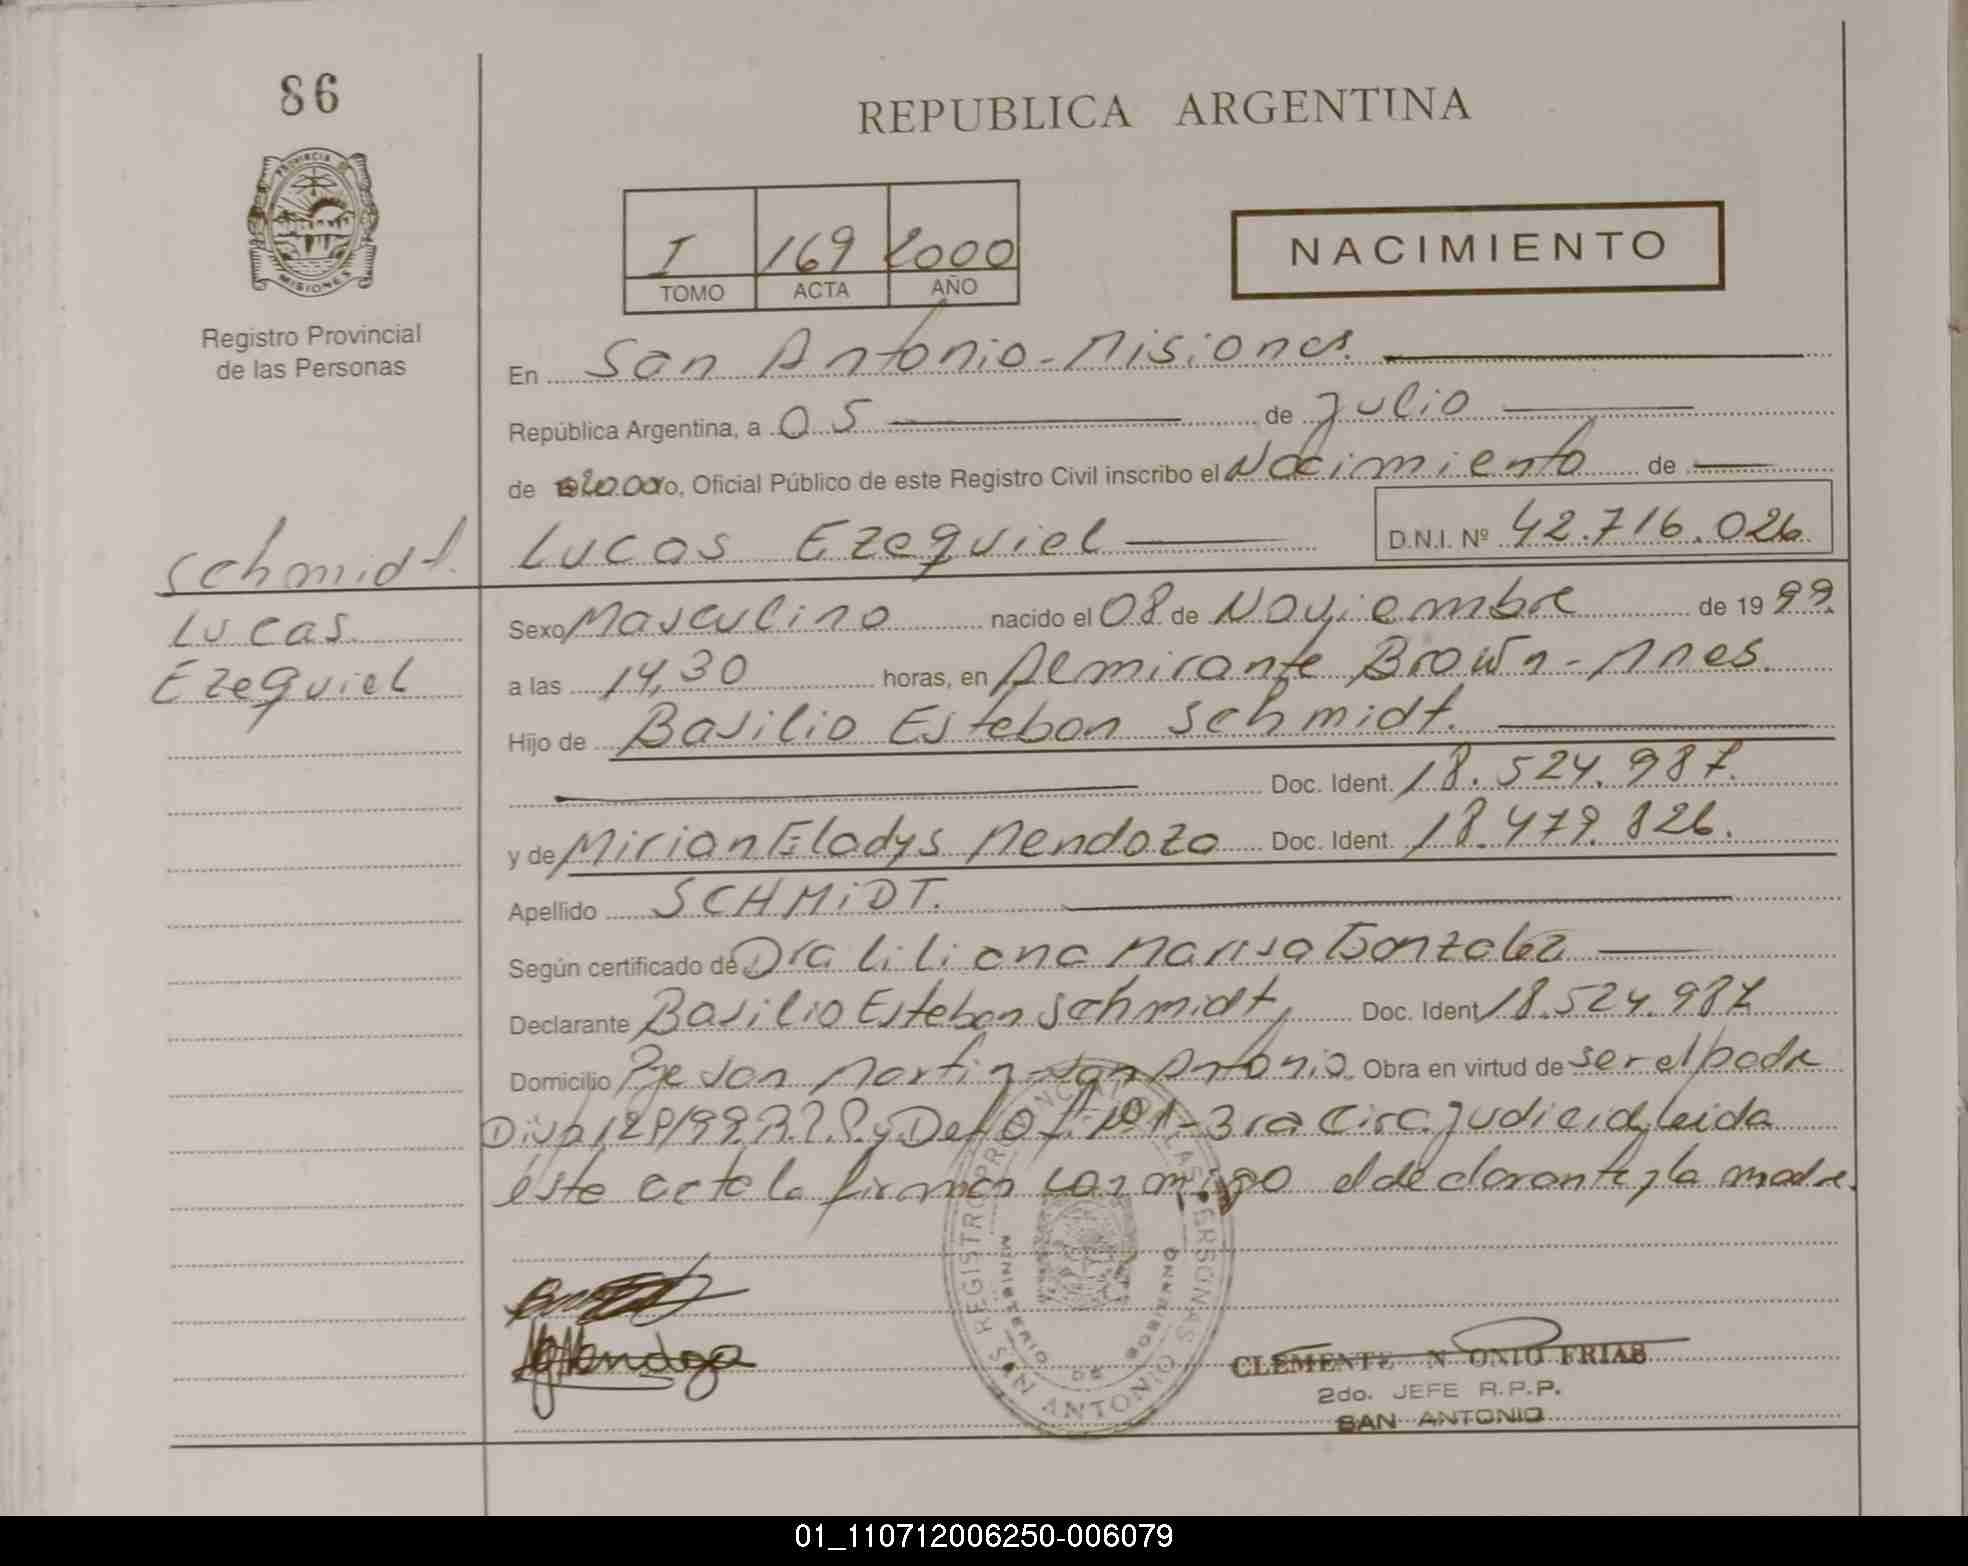 86
REPUBLICA ARGENTINA
PROVINCIA DE
MISIONES
Registro Provincial
de las Personas
I 169 2000
TOMO ACTA AÑO
NACIMIENTO
En San Antonio-Misiones.
República Argentina, a 05 de Julio
de 2000 yo, Oficial Público de este Registro Civil inscribo el Nacimiento de
Lucas Ezequiel D.N.I. Nº 42.716.026
Schmidt.
Lucas
Ezequiel
Sexo Masculino nacido el 08 de Noviembre de 1999.
a las 14,30 horas, en Almirante Brown-Mnes.
Hijo de Basilio Esteban Schmidt.
Doc. Ident. 18.524.987.
y de Mirian Gladys Mendoza Doc. Ident. 18.479.826.
Apellido SCHMiDT.
Según certificado de Dra Liliana Marisa Gonzalez
Declarante Basilio Esteban Schmidt, Doc. Ident 18.524.987
Domicilio Pje San Martin-San Antonio. Obra en virtud de ser el padre
y Def Of. Nº 1-3ra Circ. Judicial, leida
éste acta la firman conmigo el declarante y la madre.
Mendoza
REGISTRO PROVINCIAL DE LAS PERSONAS
MINISTERIO DE GOBIERNO
SAN ANTONIO
CLEMENTE N ONIO FRIAS
2do. JEFE R.P.P.
SAN ANTONIO
01_110712006250-006079